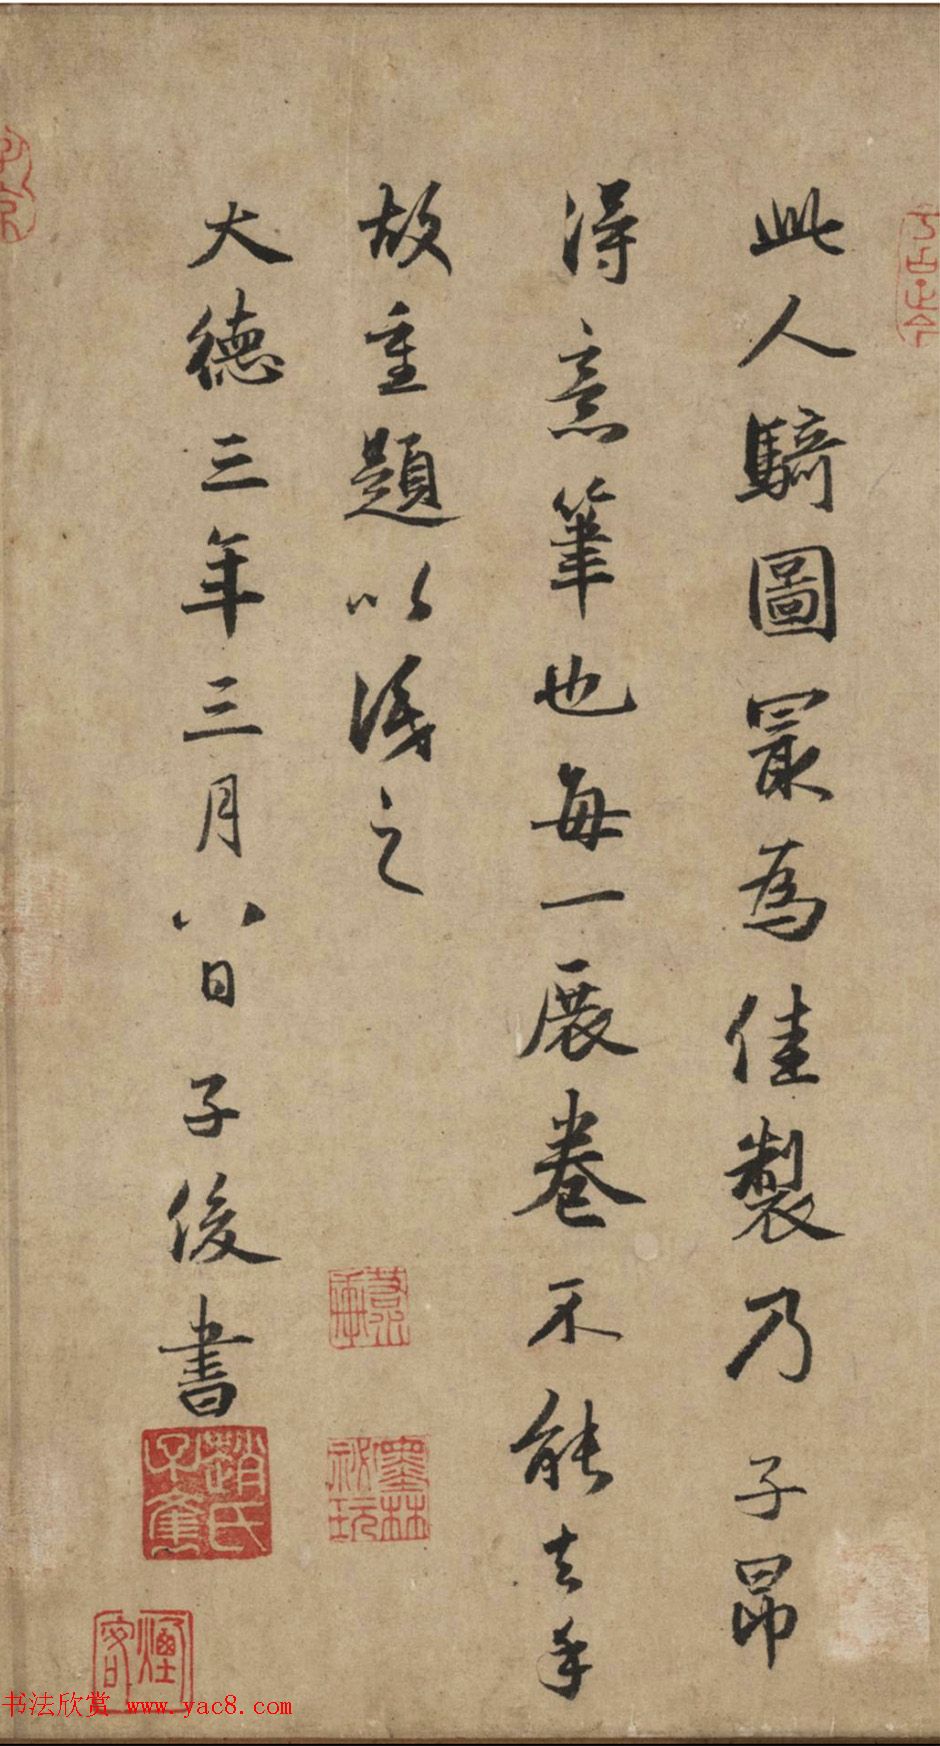 此人騎圖冣為佳製乃子昂
得意筆也每一展卷不能去手
故重題以識之
大德三年三月八日子俊書
趙氏子
墨林祕玩
書法欣賞 www.yac8.com